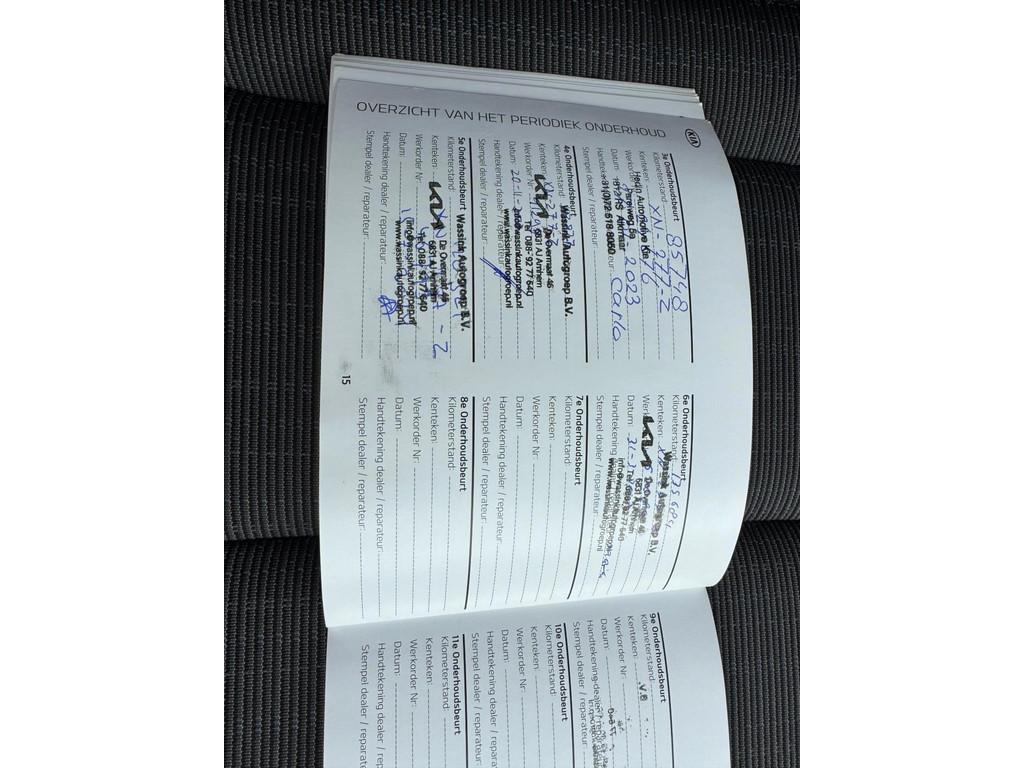 KIA
OVERZICHT VAN HET PERIODIEK ONDERHOUD
3e Onderhoudsbeurt
Kilometerstand: 85748
Kenteken: XN-277-Z
Hedin Automotive Kia
Werkorder
Datum: 2023
1812 RS Alkmaar
Handtekening Carlo
+31(0)72 518 8060
Stempel dealer / reparateur:
4e Onderhoudsbeurt
Wassink Autogroep B.V.
Kilometerstand:
Kenteken:
KIA
De Overmaat 46
Werkorder Nr:
6831 AJ Arnhem
Tel 088- 92 77 640
Datum: 20-11-
info@wassinkautogroep.nl
Handtekening dealer / reparateur:
www.wassinkautogroep.nl
Stempel dealer / reparateur:
5e Onderhoudsbeurt
Wassink Autogroep B.V.
Kilometerstand:
Kenteken:
KIA
De Overmaat 46
6831 AJ Arnhem
Werkorder Nr:
Tel 088- 92 77 640
Datum:
info@wassinkautogroep.nl
Handtekening dealer / reparateur:
www.wassinkautogroep.nl
Stempel dealer / reparateur:
15
6e Onderhoudsbeurt
Kilometerstand:
Wassink Autogroep B.V.
Kenteken:
KIA
De Overmaat 46
6831 AJ Arnhem
Datum: 31-3
Tel 088- 92 77 640
info@wassinkautogroep.nl
www.wassinkautogroep.nl
Stempel dealer / reparateur:
7e Onderhoudsbeurt
Kilometerstand:
Kenteken:
Werkorder Nr:
Datum:
Handtekening dealer / reparateur:
Stempel dealer / reparateur:
8e Onderhoudsbeurt
Kilometerstand:
Kenteken:
Werkorder Nr:
Datum:
Handtekening dealer / reparateur:
Stempel dealer / reparateur:
9e Onderhoudsbeurt
Kilometerstand:
Kenteken:
Werkorder Nr:
Datum:
Handtekening dealer / reparateur:
Stempel dealer / reparateur:
10e Onderhoudsbeurt
Kilometerstand:
Kenteken:
Werkorder Nr:
Datum:
Handtekening dealer / reparateur:
Stempel dealer / reparateur:
11e Onderhoudsbeurt
Kilometerstand:
Kenteken:
Werkorder Nr:
Datum:
Handtekening dealer / reparateur:
Stempel dealer / reparateur: